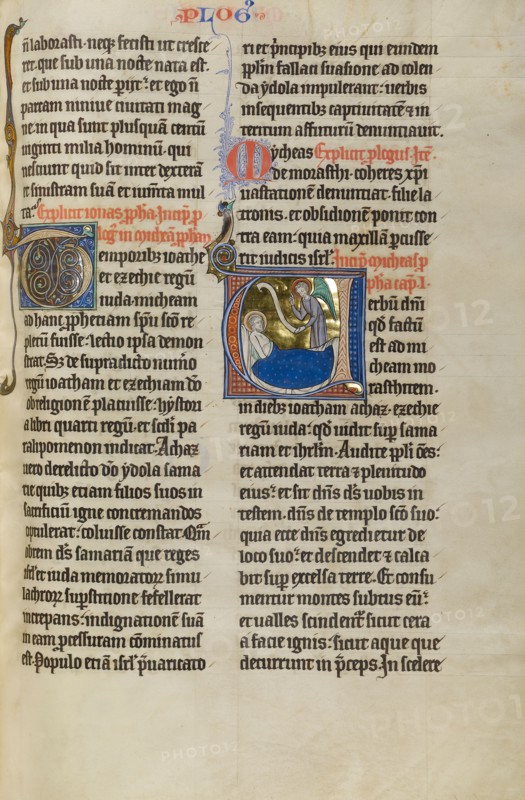 PLOG᷒
ñ laborasti. neq̨ fecisti ut cresce
ret. que sub una nocte nata est.
et sub una nocte pijt: et ego ñ
parcam niniue ciuitati mag
ne. in qua sunt plusquã centũ
uiginti milia hominũ. qui
nesciunt quid sit inter dexterã
et sinistram suã et iumta mul
ta. Explicit ionas ppha. Incip p
log᷒ in michã pphã
Temporib; ioathe
et ezechie regũ
iuda. micheam
ad hanc pphetiam spũ sco re
pletũ fuisse. lectio ipsa demon
strat. S; de supradicto numo
regũ ioatham et ezechiam do
ob religionem placuisse. hystori
a libri quarti regũ. et scdi pa
ralipomenon indicat. Achaz
uero derelicto do ydola sama
rie quib; etiam filios suos in
sacrificiũ igne concremandos
optulerat: coluisse constat. Qm
obrem ds samariã que reges
isrl et iuda memorator simu
lachror supstitione fefellerat
increpans: indignationem suã
in eam pcessuram cõminatus
est. Populo etiã isrl puaricato
ri et pncipib; eius qui eundem
pplm fallaci suasione ad colen
da ydola impulerant: uerbis
insequentib; captiuitatẽ & in
teritum affuturũ denuntiauit.
Mycheas Explicit plogus. Itẽ.
de morasthi. coheres xpi
uastationẽ denuntiat. filie la
tronis. et obsidionẽ ponit con
tra eam: quia maxillã pcusse
rit iudicis isrl. Incip micheas p
pha cap. I.
Verbũ dni
qd factũ
est ad mi
cheam mo
rasthitem.
in dieb; ioatham achaz. ezechie
regũ iuda: qd uidit sup sama
riam et ihrlm. Audite ppli oẽs:
et attendat terra & plenitudo
eius: et sit dns ds uobis in
testem. dns de templo sco suo:
quia ecce dns egredietur de
loco suo: et descendet & calca
bit sup excelsa terre. Et consu
mentur montes subtus eũ:
et ualles scindent᷑ sicut cera
a facie ignis: sicut aque que
decurrunt in pceps. In scelere
PHOTO12